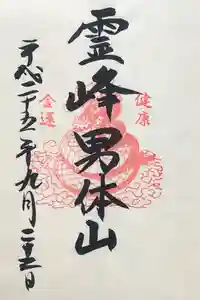 健康
霊峰男体山
金運
平成二十五年九月二十五日